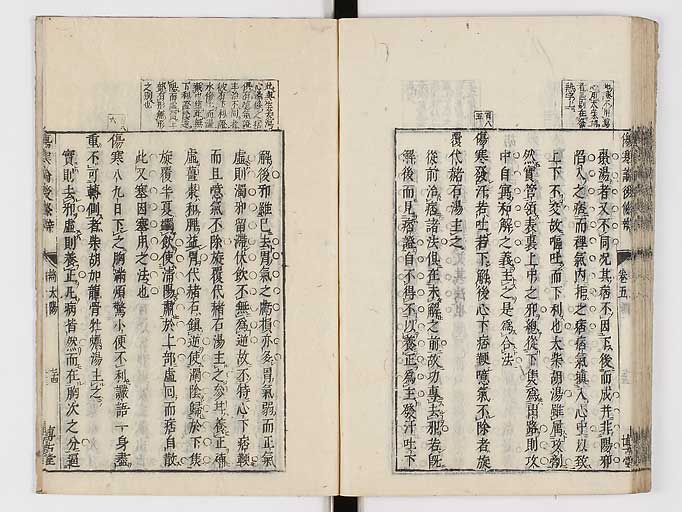 瀉湯者又不同況其病不因下後而成并非陽邪
陷入之痞而裡氣内拒之痞痞氣填入心中以致
上下不交故嘔吐而下利也大柴胡湯雖屬攻劑
然實管領表裏上中之邪總從下焦為出路則攻
中自寓和解之義主之是為合法
傷寒發汗若吐若下解後心下痞鞕噫氣不除者旋
覆代赭石湯主之
從前治痞諸法俱在未解之前故功專去邪若既
解後而見痞證自不得不以養正為主發汗吐下
解後邪雖已去胃氣之虧損亦多胃氣弱而正氣
虛則濁邪留滯伏飲不無為逆故不特心下痞鞕
而且噫氣不除旋覆代赭石湯主之參甘養正補
虛薑棗和脾益胃代赭石鎮逆使濁陰歸於下焦
旋覆半夏蠲飲使清陽肅於上部虛回而痞自散
此又塞因塞用之法也
傷寒八九日下之胸滿煩驚小便不利譫語一身盡
重不可轉側者柴胡加龍骨牡蠣湯主之
實則去邪虛則養正凡病皆然而在胸次之分逼
卷五
論太陽